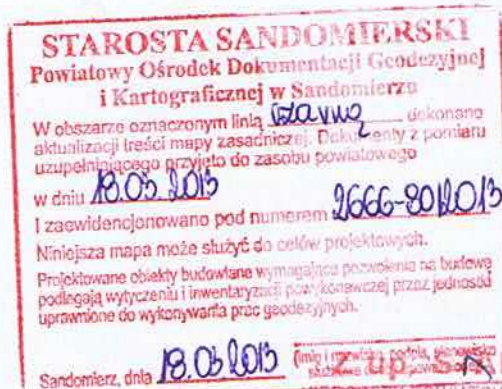 STAROSTA SANDOMIERSKI
Powiatowy Ośrodek Dokumentacji Geodezyjnej
i Kartograficznej w Sandomierzu
W obszarze oznaczonym linią czarną dokonano
aktualizacji treści mapy zasadniczej. Dokumenty z pomiaru
uzupełniającego przyjęto do zasobu powiatowego
w dniu 18.03.2013
i zaewidencjonowano pod numerem 2666-80/2013
Niniejsza mapa może służyć do celów projektowych.
Projektowane obiekty budowlane wymagające pozwolenia na budowę
podlegają wytyczeniu i inwentaryzacji powykonawczej przez jednostki
uprawnione do wykonywania prac geodezyjnych.
Sandomierz, dnia 18.03.2013 (imię i nazwisko, podpis, stanowisko
z up.